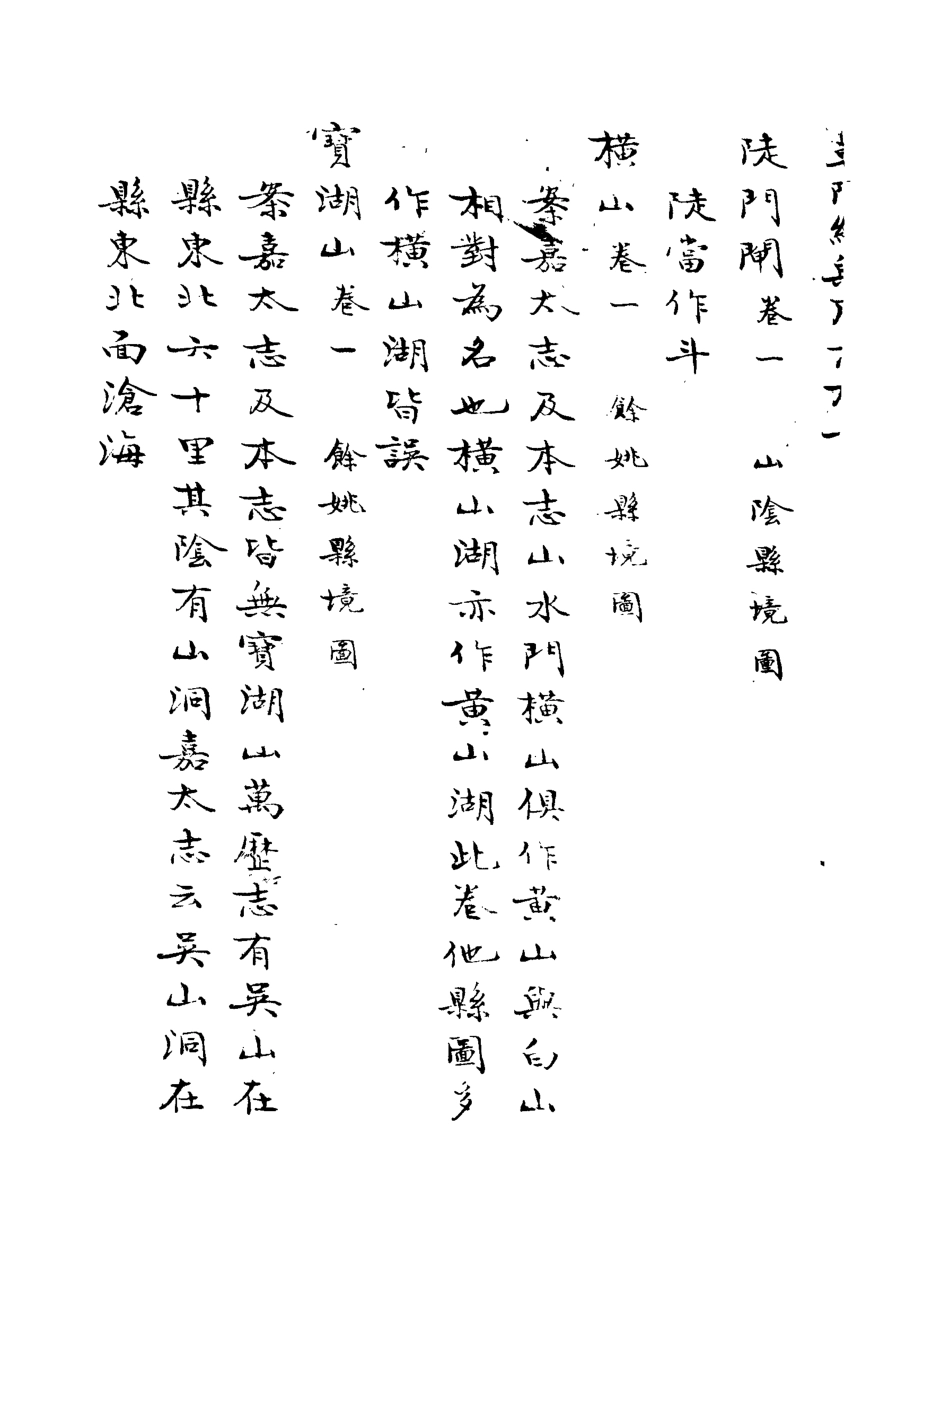 陡門閘卷一　山陰縣境圖
陡當作斗
橫山卷一　餘姚縣境圖
案嘉太志及本志山水門橫山俱作黃山與白山
相對為名也橫山湖亦作黃山湖此卷他縣圖多
作橫山湖皆誤
寶湖山卷一　餘姚縣境圖
案嘉太志及本志皆無寶湖山萬歷志有吳山在
縣東北六十里其陰有山洞嘉太志云吳山洞在
縣東北面滄海